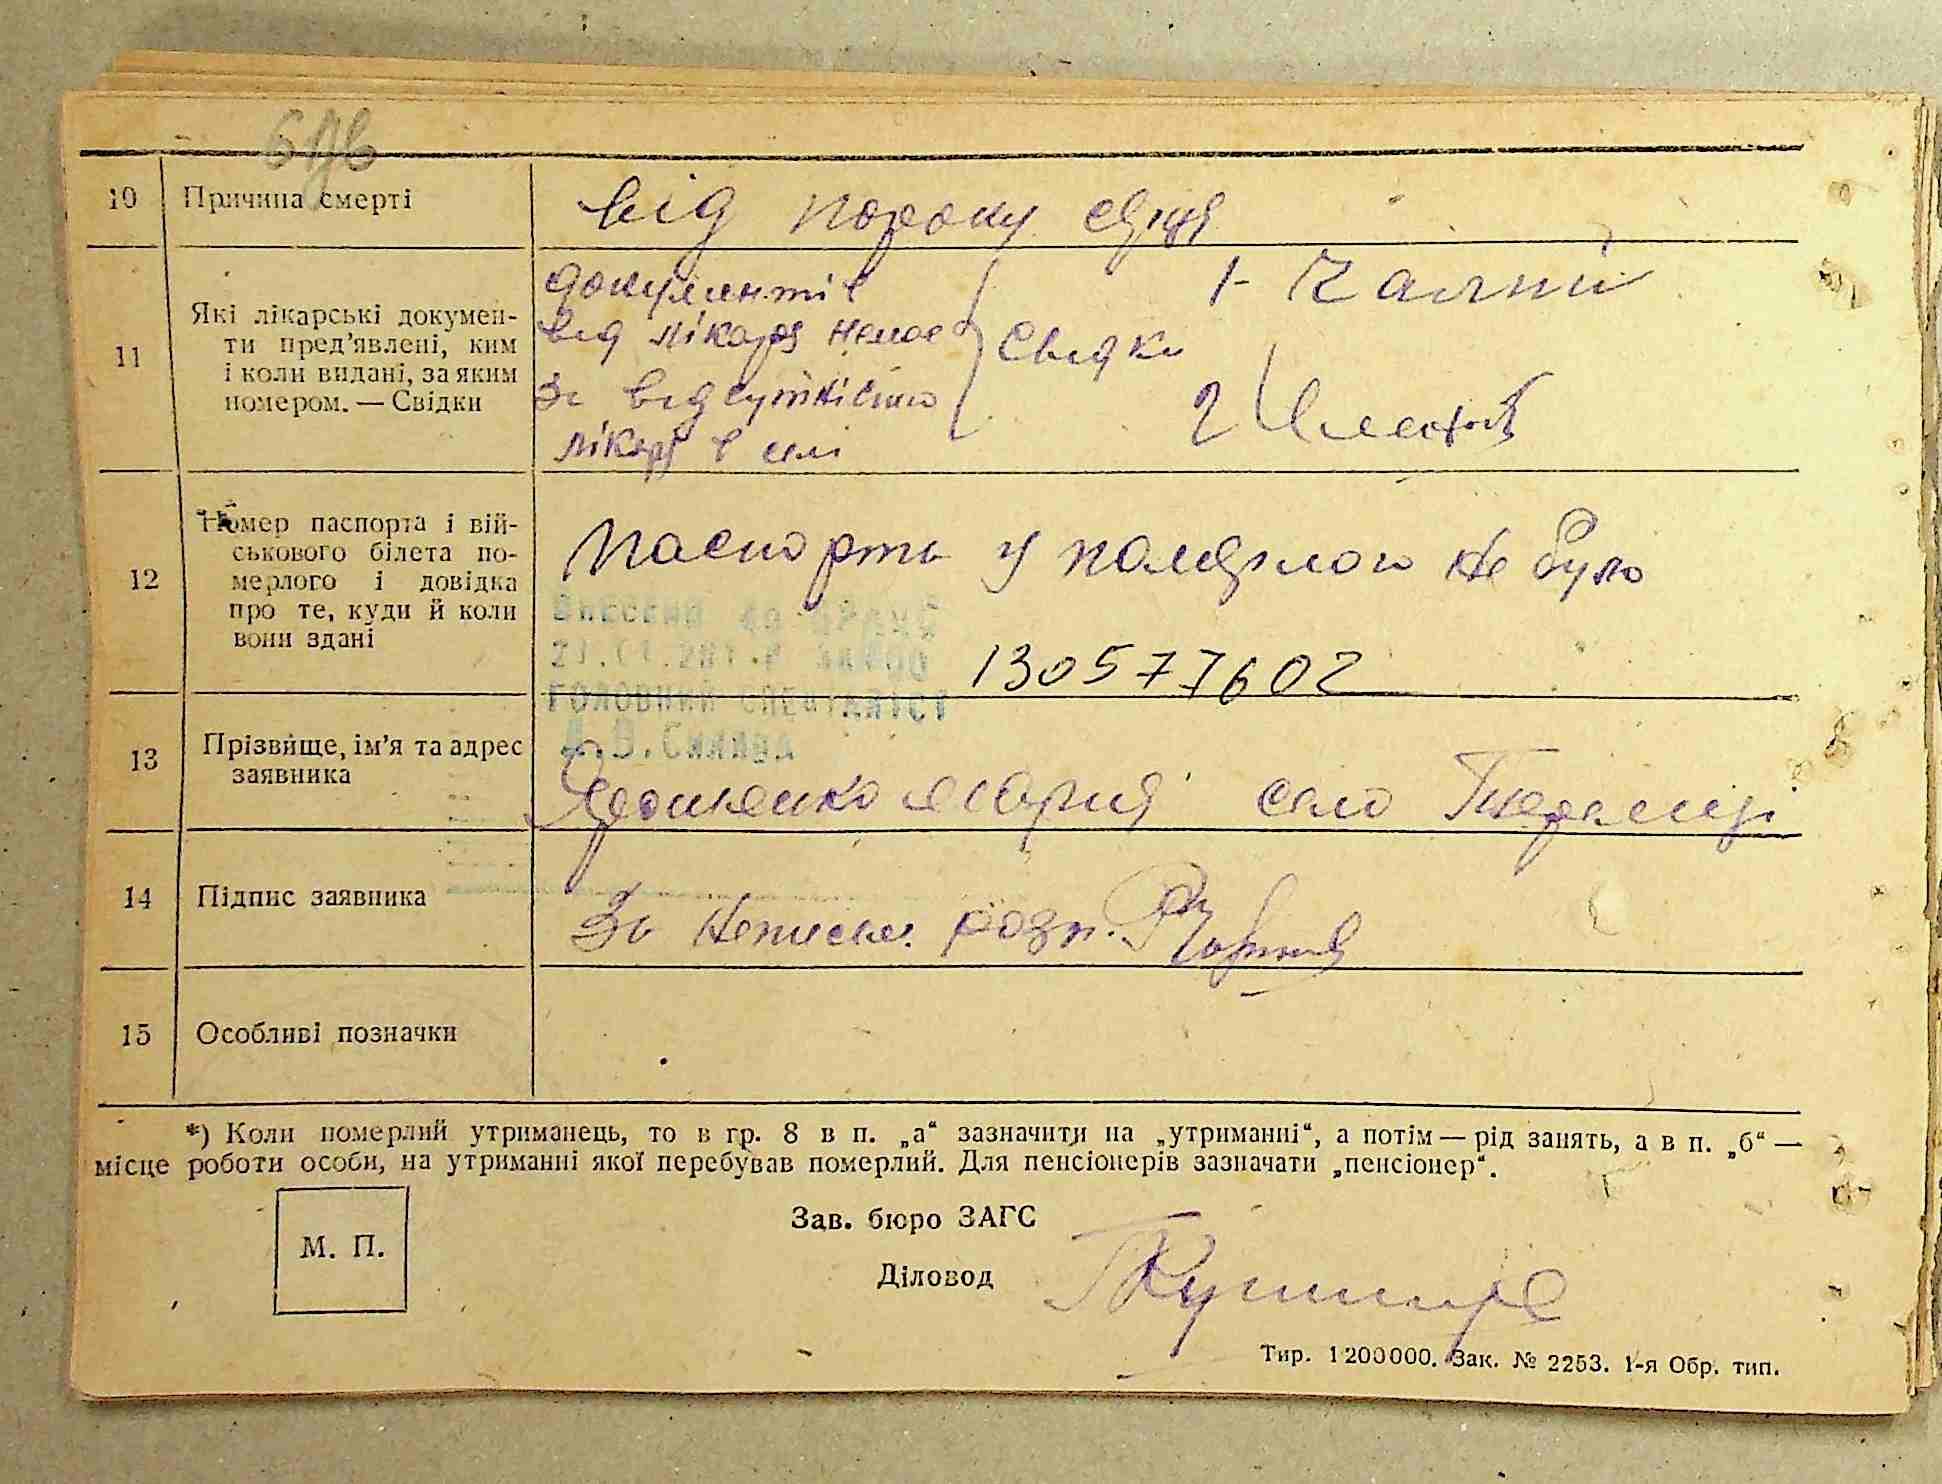 10 Причина смерті від пороку серця
11 Які лікарські докумен-
ти пред’явлені, ким
і коли видані, за яким
номером. — Свідки
документів
від лікаря немає
за відсутністю
лікаря в селі
Свідки
1-
2
12 Номер паспорта і вій-
ськового білета по-
мерлого і довідка
про те, куди й коли
вони здані
Паспорть у померлого не було
130577602
Внесени до
ГОЛОВНИЙ СПЕЦІАЛІСТ
13 Прізвище, ім’я та адрес
заявника
село
14 Підпис заявника
За неписьм. розп.
15 Особливі позначки
*) Коли померлий утриманець, то в гр. 8 в п. „а“ зазначити на „утриманні“, а потім — рід занять, а в п. „б“ —
місце роботи особи, на утриманні якої перебував померлий. Для пенсіонерів зазначати „пенсіонер“.
М. П.
Зав. бюро ЗАГС
Діловод
Тир. 1200000. Зак. № 2253. 1-я Обр. тип.